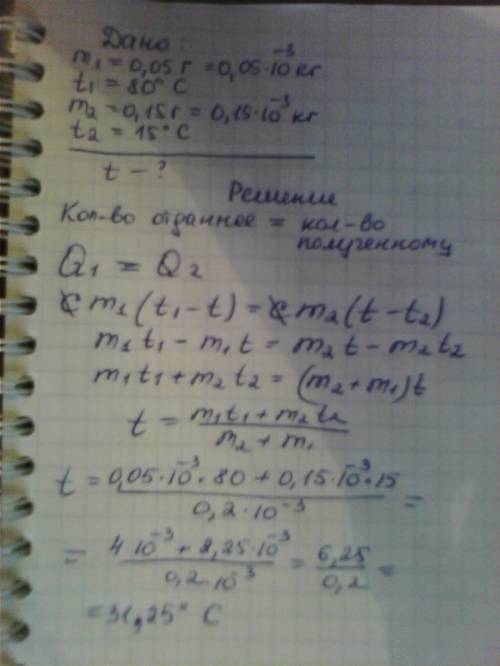 Дано:
m₁ = 0,05 г = 0,05·10⁻³ кг
t₁ = 80° C
m₂ = 0,15 г = 0,15·10⁻³ кг
t₂ = 15° C
t — ?
Решение
Кол-во отданное = кол-во
полученному
Q₁ = Q₂
c m₁ (t₁ - t) = c m₂ (t - t₂)
m₁ t₁ - m₁ t = m₂ t - m₂ t₂
m₁ t₁ + m₂ t₂ = (m₂ + m₁) t
t = (m₁ t₁ + m₂ t₂) / (m₂ + m₁)
t = (0,05·10⁻³·80 + 0,15·10⁻³·15) / (0,2·10⁻³) =
= (4·10⁻³ + 2,25·10⁻³) / (0,2·10⁻³) = 6,25 / 0,2 =
= 31,25° C